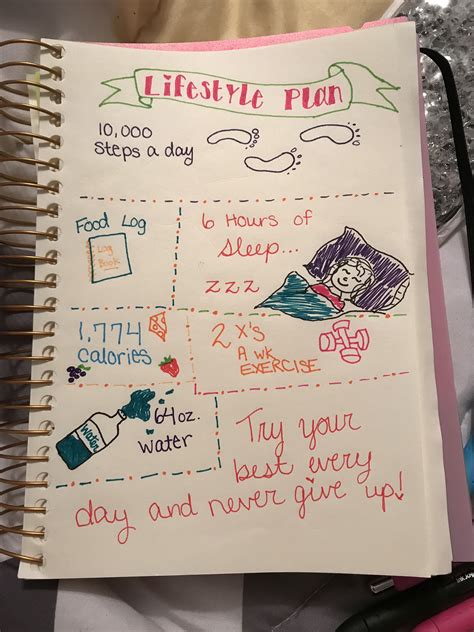 Lifestyle Plan
10,000
Steps a day
Food Log
Log
Book
6 Hours of
Sleep...
zzz
1,774
Calories
2 X's
A wk
EXERCISE
64oz.
Water
water
Try your
best every
day and never give up!